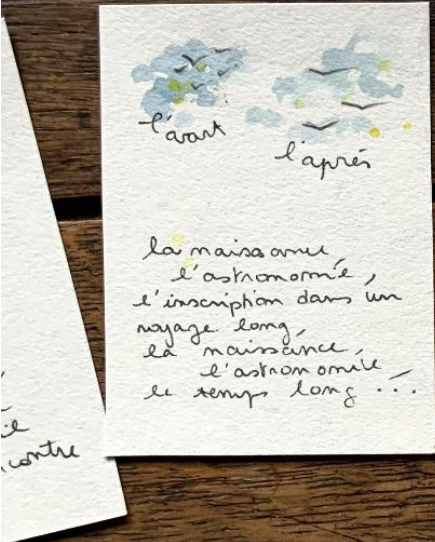 l'avant
l'après
la naissance,
l'astronomie,
l'inscription dans un
voyage long,
la naissance,
l'astronomie
le temps long ...
contre